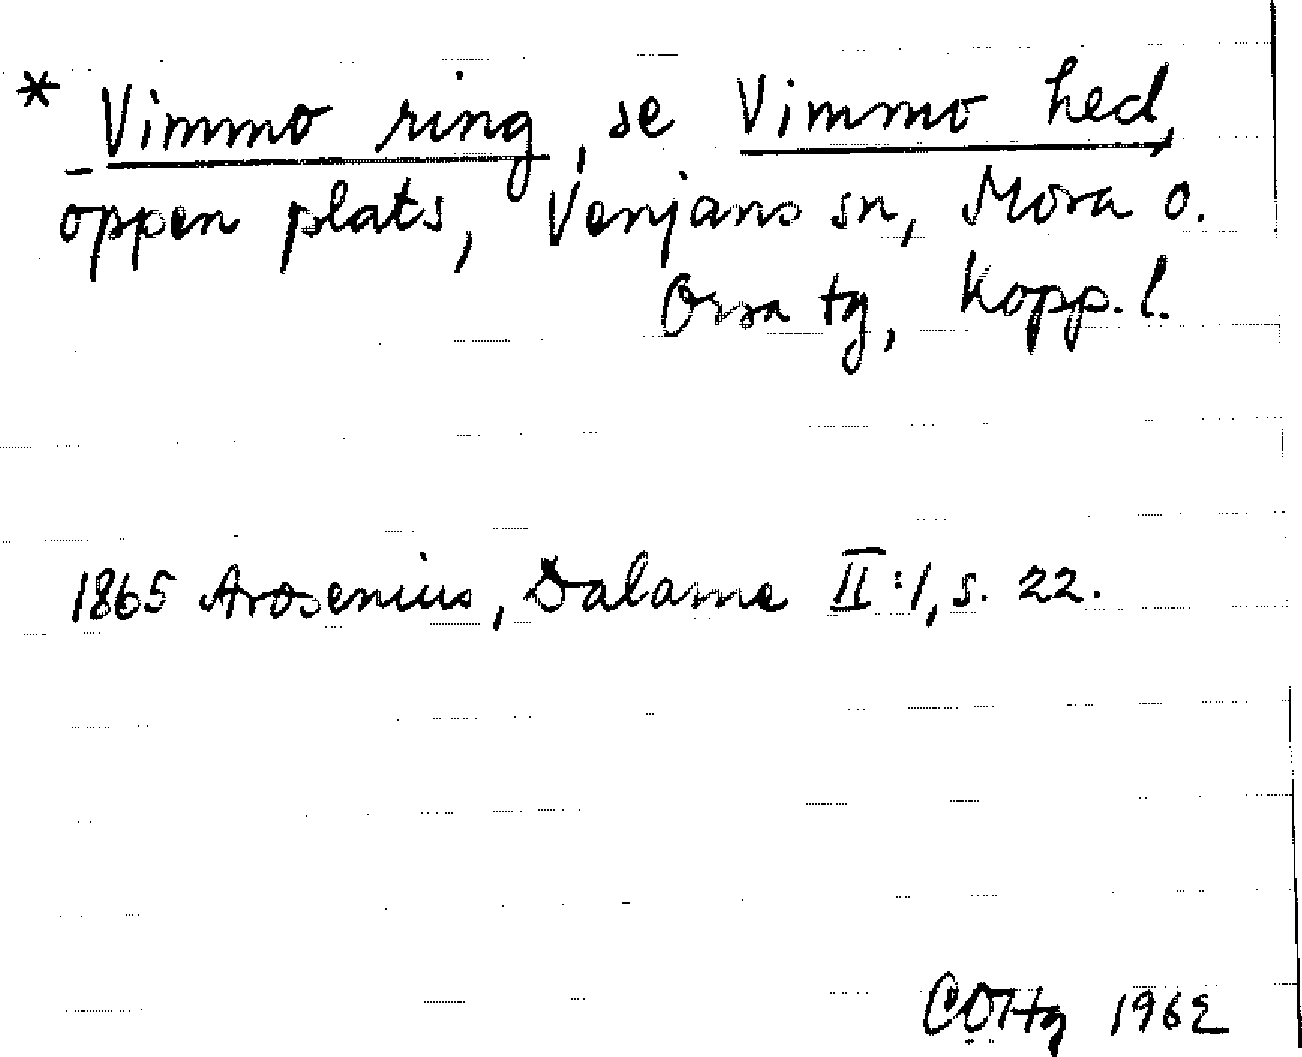 * Vimmo ring, se Vimmo hed,
öppen plats, Venjans sn, Mora o.
Orsa tg, Kopp. l.
1865 Arosenius, Dalarne II:1, s. 22.
1962